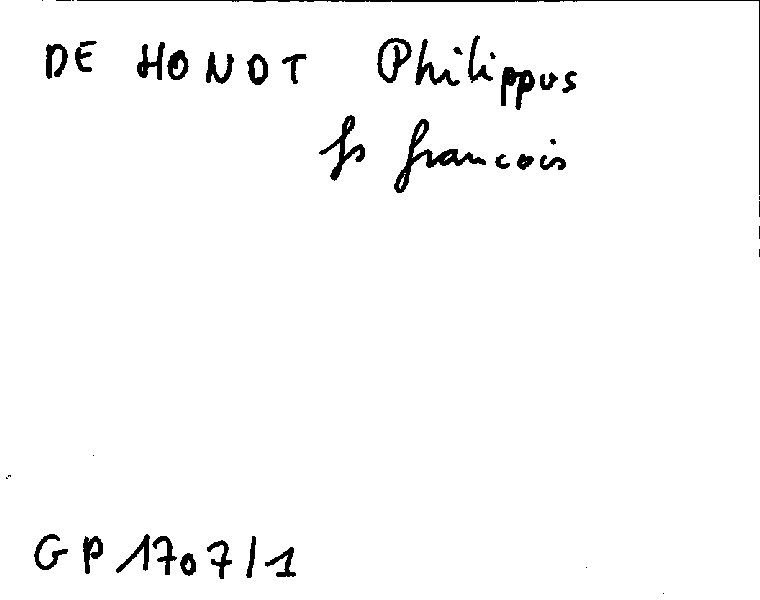 DE HONDT Philippus
fs francois
GP 1707/1